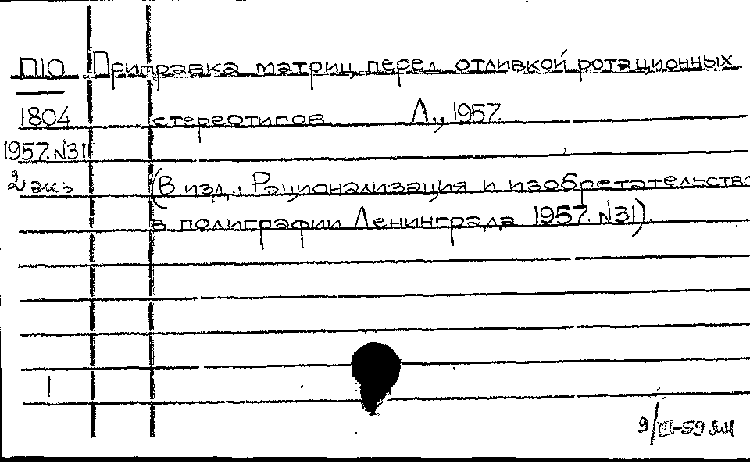 П10 Приправка матриц перед отливкой ротационных
1804 стереотипов Л., 1957
1957.N31
2 экз (В изд.: Рационализация и изобретательство
в полиграфии Ленинграда 1957. N31).
9/III-59